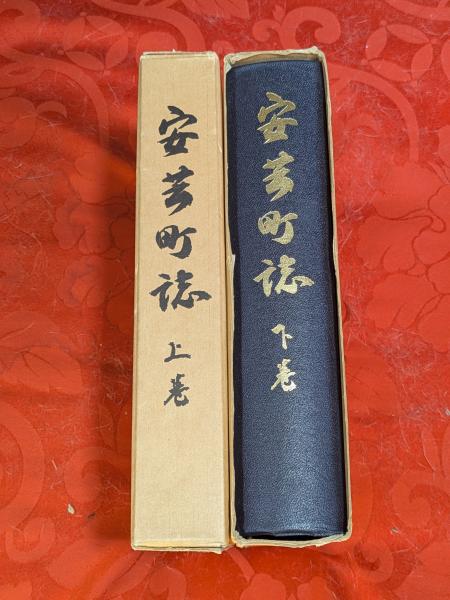 安芸町誌
上巻
安芸町誌
下巻